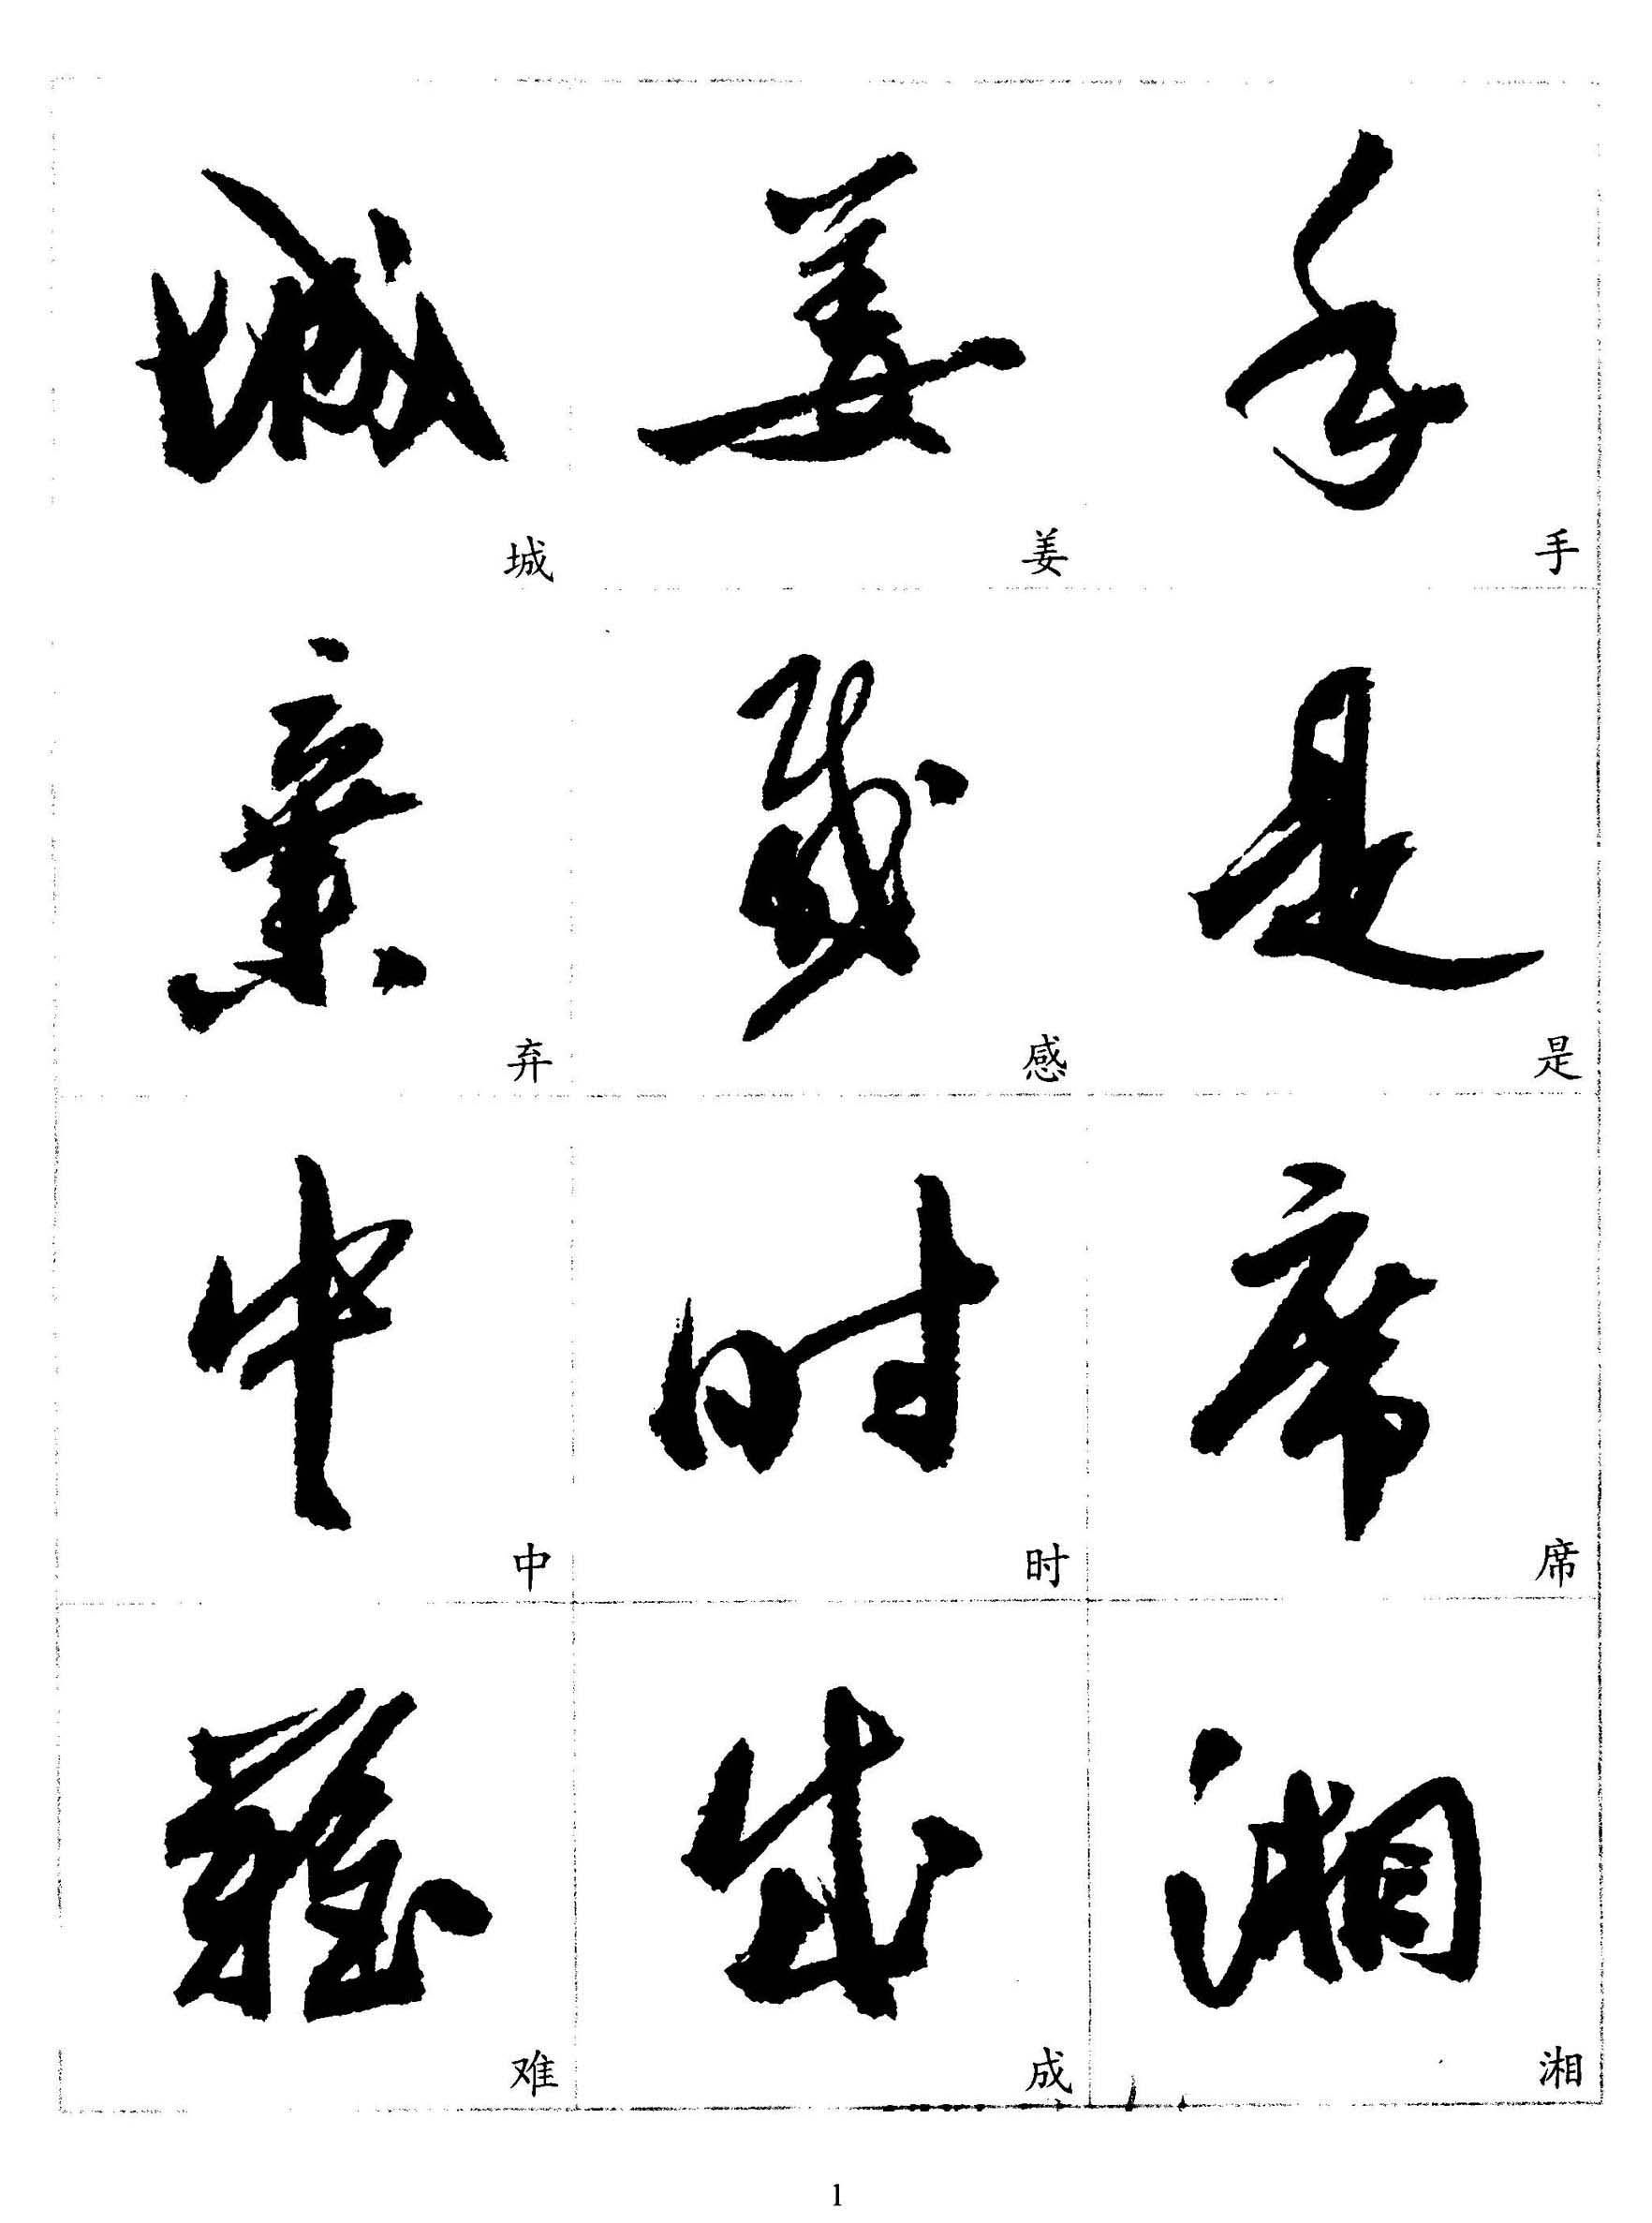 城 姜 手
城 姜 手
棄 感 是
弃 感 是
中 时 席
中 时 席
難 成 湘
难 成 湘
1